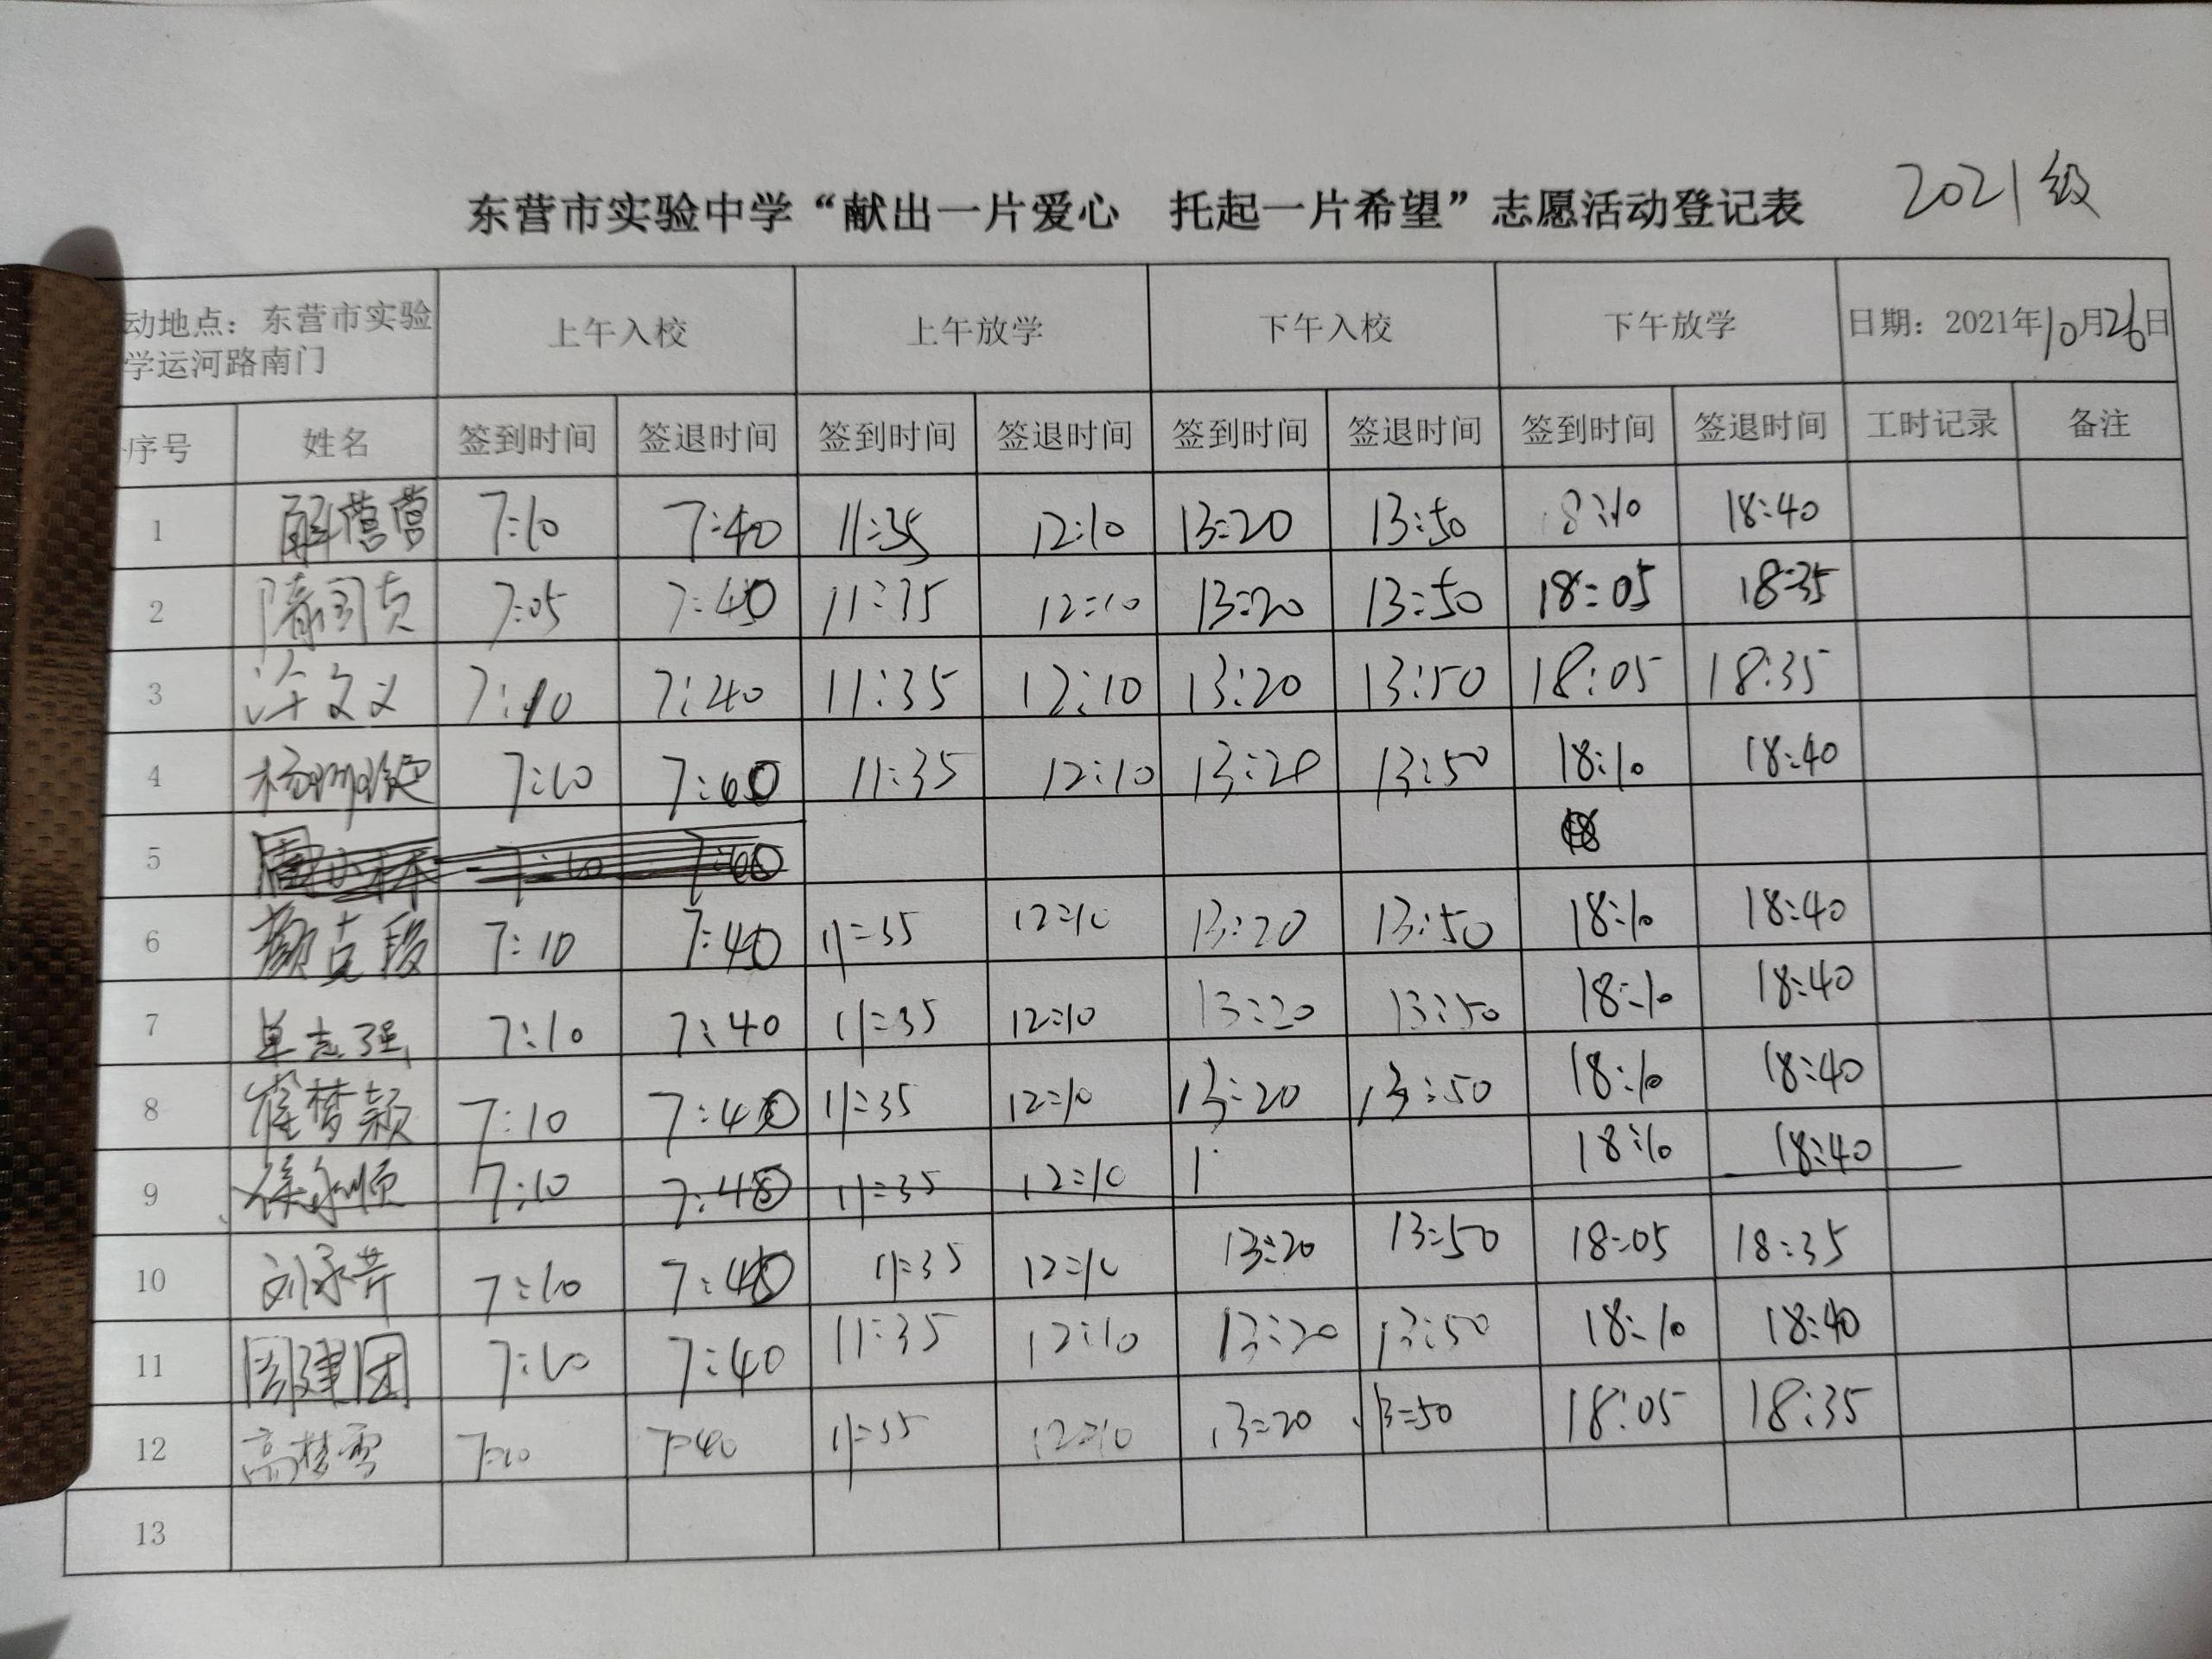 东营市实验中学“献出一片爱心 托起一片希望”志愿活动登记表 2021级
动地点：东营市实验 上午入校 上午放学 下午入校 下午放学 日期：2021年10月26日
学运河路南门
序号 姓名 签到时间 签退时间 签到时间 签退时间 签到时间 签退时间 签到时间 签退时间 工时记录 备注
1 解营营 7:10 7:40 11:35 12:10 13:20 13:50 18:10 18:40
2 7:05 7:40 11:35 12:10 13:20 13:50 18:05 18:35
3 许文义 7:10 7:40 11:35 12:10 13:20 13:50 18:05 18:35
4 7:10 7:40 11:35 12:10 13:20 13:50 18:10 18:40
5 7:10
6 7:10 7:40 11:35 12:10 13:20 13:50 18:10 18:40
7 单志强 7:10 7:40 11:35 12:10 13:20 13:50 18:10 18:40
8 崔梦颖 7:10 7:40 11:35 12:10 13:20 13:50 18:10 18:40
9 徐永顺 7:10 7:40 11:35 12:10 1 18:10 18:40
10 7:10 7:40 11:35 12:10 13:20 13:50 18:05 18:35
11 周建团 7:10 7:40 11:35 12:10 13:20 13:50 18:10 18:40
12 高梦雪 7:10 7:40 11:35 12:10 13:20 13:50 18:05 18:35
13